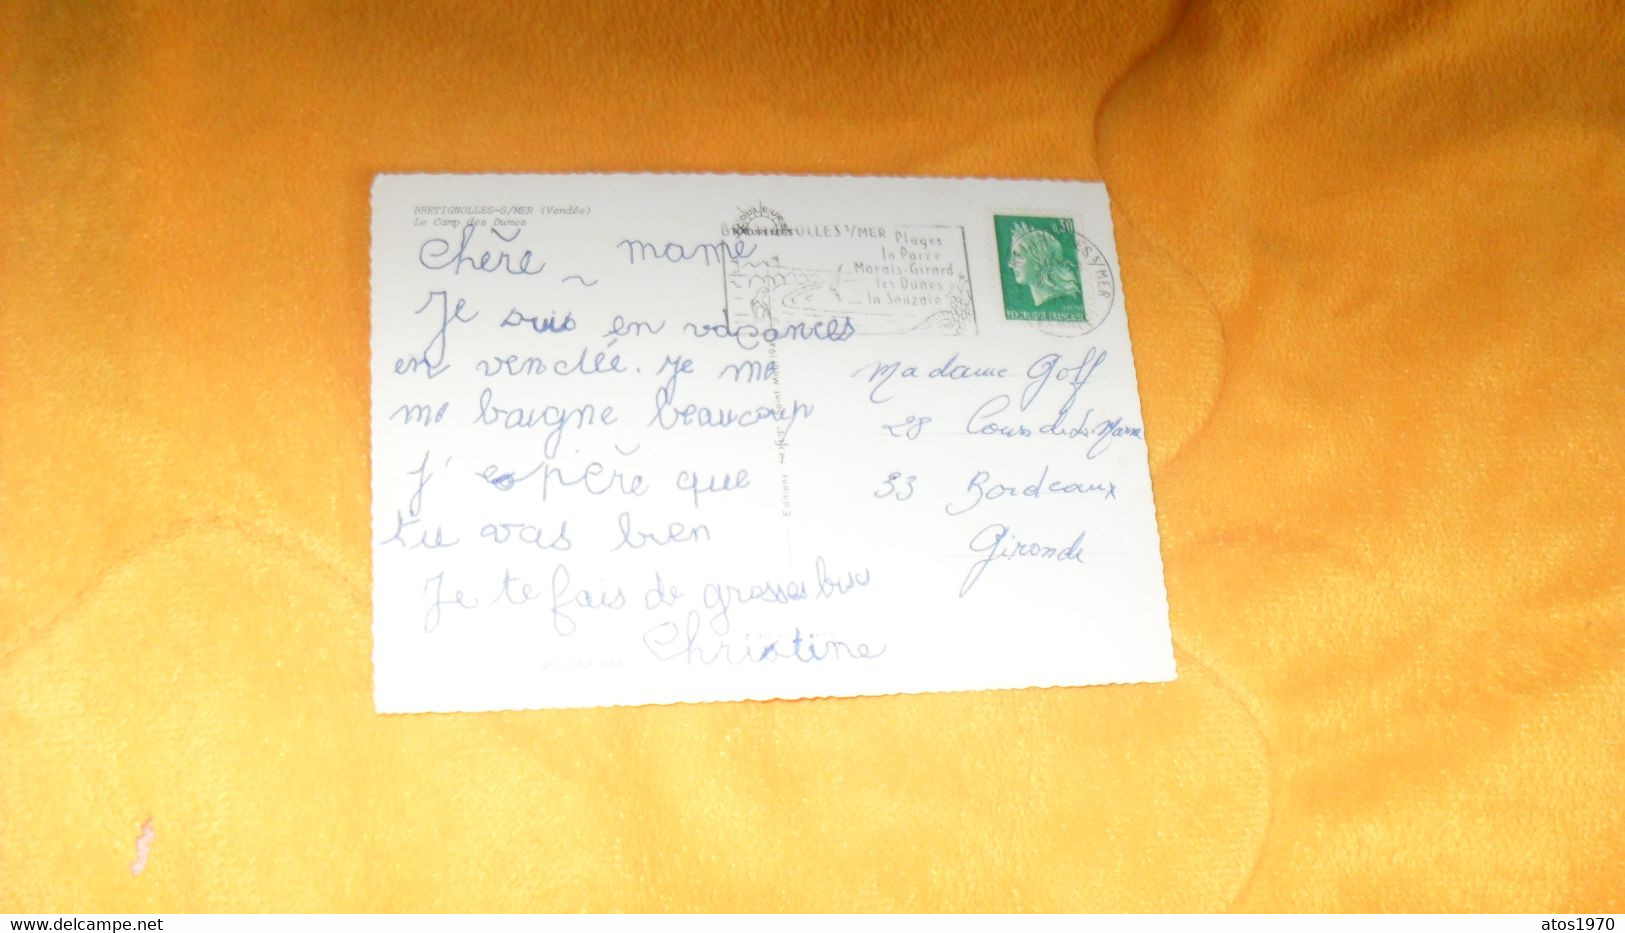 BRETIGNOLLES-S/MER (Vendée)
Le Camp des Dunes
COULEURS
NATURELLES
BRETIGNOLLES S/MER
Plages
la Parée
Marais-Girard
les Dunes
la Sauzaie
0,30
REPUBLIQUE FRANÇAISE
S S/MER
Chère mamé
Je suis en vacances
en vendée. Je me
me baigne beaucoup
J'espère que
tu vas bien
Je te fais de grosses bises
Christine
Editions
Madame Goff
28 Cours de la Marne
33 Bordeaux
Gironde
www.delcampe.net
atos1970